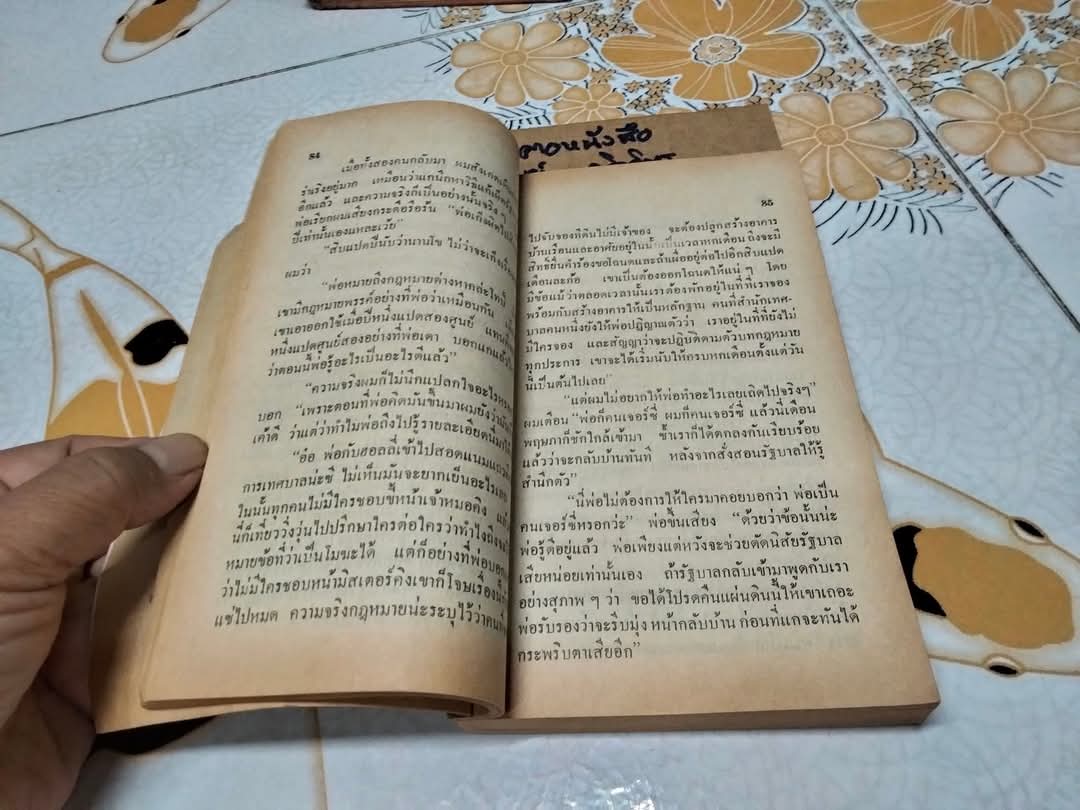 ตาอหนังสือ
84
เมื่อทั้งสองคนกลับมา ผมสังเกตเห็น
รื่นเริงอยู่มาก เหมือนว่าแกนึกหาวิธีแก้เผ็ดรัฐ
อีกแล้ว และความจริงก็เป็นอย่างนั้นจริง ๆ
พ่อเรียกผมเสียงกระดือรือร้น “พ่อเกิดผิดไป
ปีเท่านั้นเองแหละเว้ย”
“สิบแปดปีนับว่านานโข ไม่ว่าจะเพ็งเรื่อง
ผมว่า
“พ่อหมายถึงกฎหมายต่างหากล่ะไทป์
เขามีกฎหมายพรรค์อย่างที่พ่อว่าเหมือนกัน
เขาเอาออกใช้เมื่อปีหนึ่งแปดสองศูนย์ แทนที่
หนึ่งแปดศูนย์สองอย่างที่พ่อเดา นอกแคแล้ว
ว่าตอนนี้พ่อรู้อะไรเป็นอะไรดีแล้ว”
“ความจริงผมก็ไม่นึกแปลกใจอะไรหรอก
บอก “เพราะตอนที่พ่อคิดมันขึ้นมาผมยังว่ามัน
เค้าดี ว่าแต่ว่าทำไมพ่อถึงไปรู้รายละเอียดนี่มาได้
“อ๋อ พ่อกับฮอลลี่เข้าไปสอดแนมแถว
การเทศบาลน่ะซี ไม่เห็นมันจะยากเย็นอะไรเลย
ในนั้นทุกคนไม่มีใครชอบขี้หน้าเจ้าหมอคิง แต่
นี่ก็เที่ยววิ่งวุ่นไปปรึกษาใครต่อใครว่าทำไงถึงจะ
หมายข้อที่ว่าเป็นโมฆะได้ แต่ก็อย่างที่พ่อบอก
ว่าไม่มีใครชอบหน้ามิสเตอร์คิงเขาก็โจษเรื่องนี้
แซ่ไปหมด ความจริงกฎหมายน่ะระบุไว้ว่าคน
85
ไปจับจองที่ดินไม่มีเจ้าของ จะต้องปลูกสร้างอาคาร
บ้านเรือนและอาศัยอยู่ในนั้นเป็นเวลาหกเดือน ถึงจะมี
สิทธิ์ยื่นคำร้องขอโฉนดและฉันเผื่ออยู่ต่อไปอีกสิบแปด
เดือนละก้อ เขาเป็นต้องออกโฉนดให้แน่ ๆ โดย
มีข้อแม้ว่าตลอดเวลานั้นเราต้องพักอยู่ในที่ที่เราจอง
พร้อมกับสร้างอาคารให้เป็นหลักฐาน คนที่สำนักเทศ-
บาลคนหนึ่งยังให้พ่อปฏิญาณตัวว่า เราอยู่ในที่ที่ยังไม่
มีใครจอง และสัญญาว่าจะปฏิบัติตามตัวบทกฎหมาย
ทุกประการ เขาจะได้เริ่มนับให้ครบหกเดือนตั้งแต่วัน
นี้เป็นต้นไปเลย”
“แต่ผมไม่อยากให้พ่อทำอะไรเลยเถิดไปจริงๆ”
ผมเตือน “พ่อก็คนเจอร์ซี่ ผมก็คนเจอร์ซี่ แล้วนี่เดือน
พฤษภาก็ชักใกล้เข้ามา ซ้ำเราก็ได้ตกลงกันเรียบร้อย
แล้วว่าจะกลับบ้านทันที หลังจากสั่งสอนรัฐบาลให้รู้
สำนึกตัว”
“นี่พ่อไม่ต้องการให้ใครมาคอยบอกว่า พ่อเป็น
คนเจอร์ซี่หรอกว่ะ” พ่อขึ้นเสียง “ด้วยว่าข้อนั้นน่ะ
พ่อรู้ดีอยู่แล้ว พ่อเพียงแต่หวังจะช่วยดัดนิสัยรัฐบาล
เสียหน่อยเท่านั้นเอง ถ้ารัฐบาลกลับเข้ามาพูดกับเรา
อย่างสุภาพ ๆ ว่า ขอได้โปรดคืนแผ่นดินนี้ให้เขาเถอะ
พ่อรับรองว่าจะรีบมุ่งหน้ากลับบ้าน ก่อนที่แกจะทันได้
กระพริบตาเสียอีก”